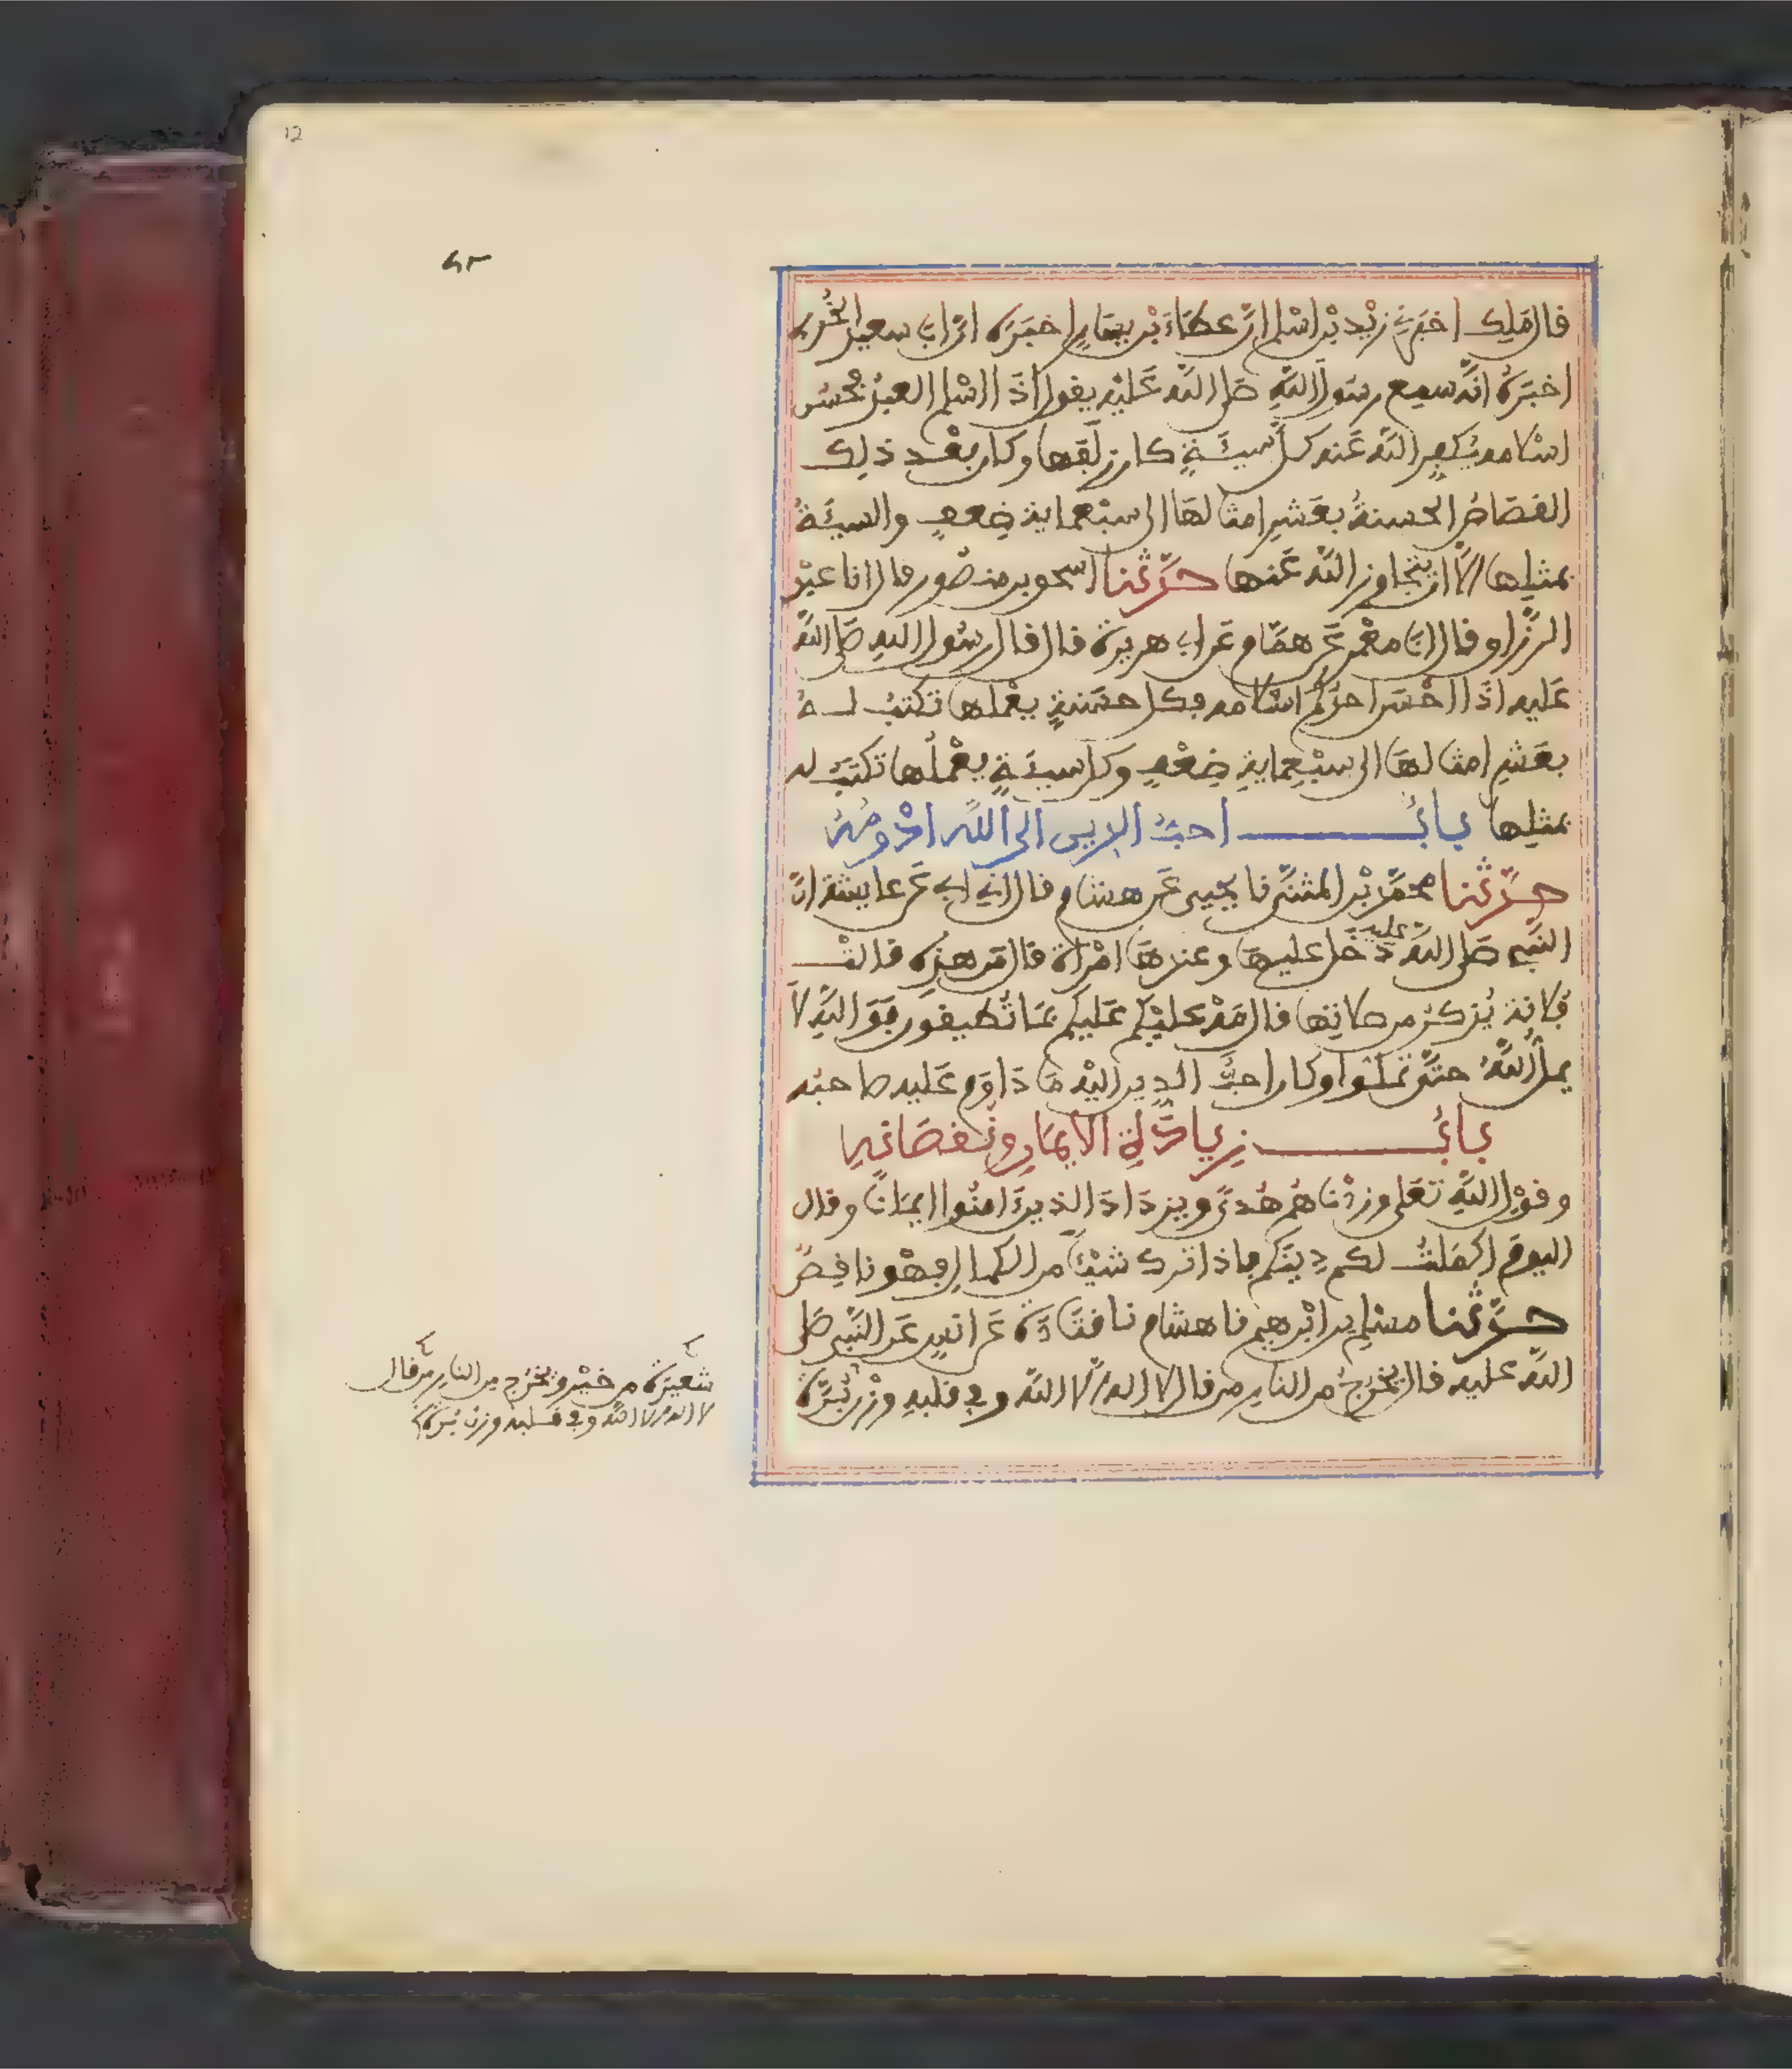 12
قال ملك اخبرني زيد بن اسلم ان عطاء بن يسار اخبره ان ابا سعيد الخدري
اخبره انه سمع رسول الله صلى الله عليه يقول اذا اسلم العبد فحسن
اسلامه يكفر الله عنه كل سيئة كان زلفها وكان بعد ذلك
القصاص الحسنة بعشر امثالها الى سبعماية ضعف والسيئة
بمثلها الا ان يتجاوز الله عنها حدثنا اسحق بن منصور قال انا عبد
الرزاق قال انا معمر عن همام عن ابي هريرة قال قال رسول الله صلى الله
عليه اذا احسن احدكم اسلامه فكل حسنة يعملها تكتب له
بعشر امثالها الى سبعماية ضعف وكل سيئة يعملها تكتب له
بمثلها باب احب الدين الى الله ادومه
حدثنا محمد بن المثنى نا يحيى عن هشام قال اني ابي عن عايشة ان
النبي صلى الله عليه دخل عليها وعندها امراة قال من هذه قالت
فلانة يذكر من صلاتها قال مه عليكم عليكم بما تطيقون فو الله لا
يمل الله حتى تملوا وكان احب الدين اليه ما داوم عليه صاحبه
باب زيادة الايمان ونقصانه
وقول الله تعلى وزدناهم هدى ويزداد الذين امنوا ايمانا وقال
اليوم اكملت لكم دينكم فاذا ترك شيئا من الكمال فهو ناقص
حدثنا مسلم بن ابرهيم نا هشام نا قتادة عن انس عن النبي صلى
الله عليه قال يخرج من النار من قال لا اله الا الله وفي قلبه وزن برة
شعيرة من خير ويخرج من النار من قال
لا اله الا الله وفي قلبه وزن برة